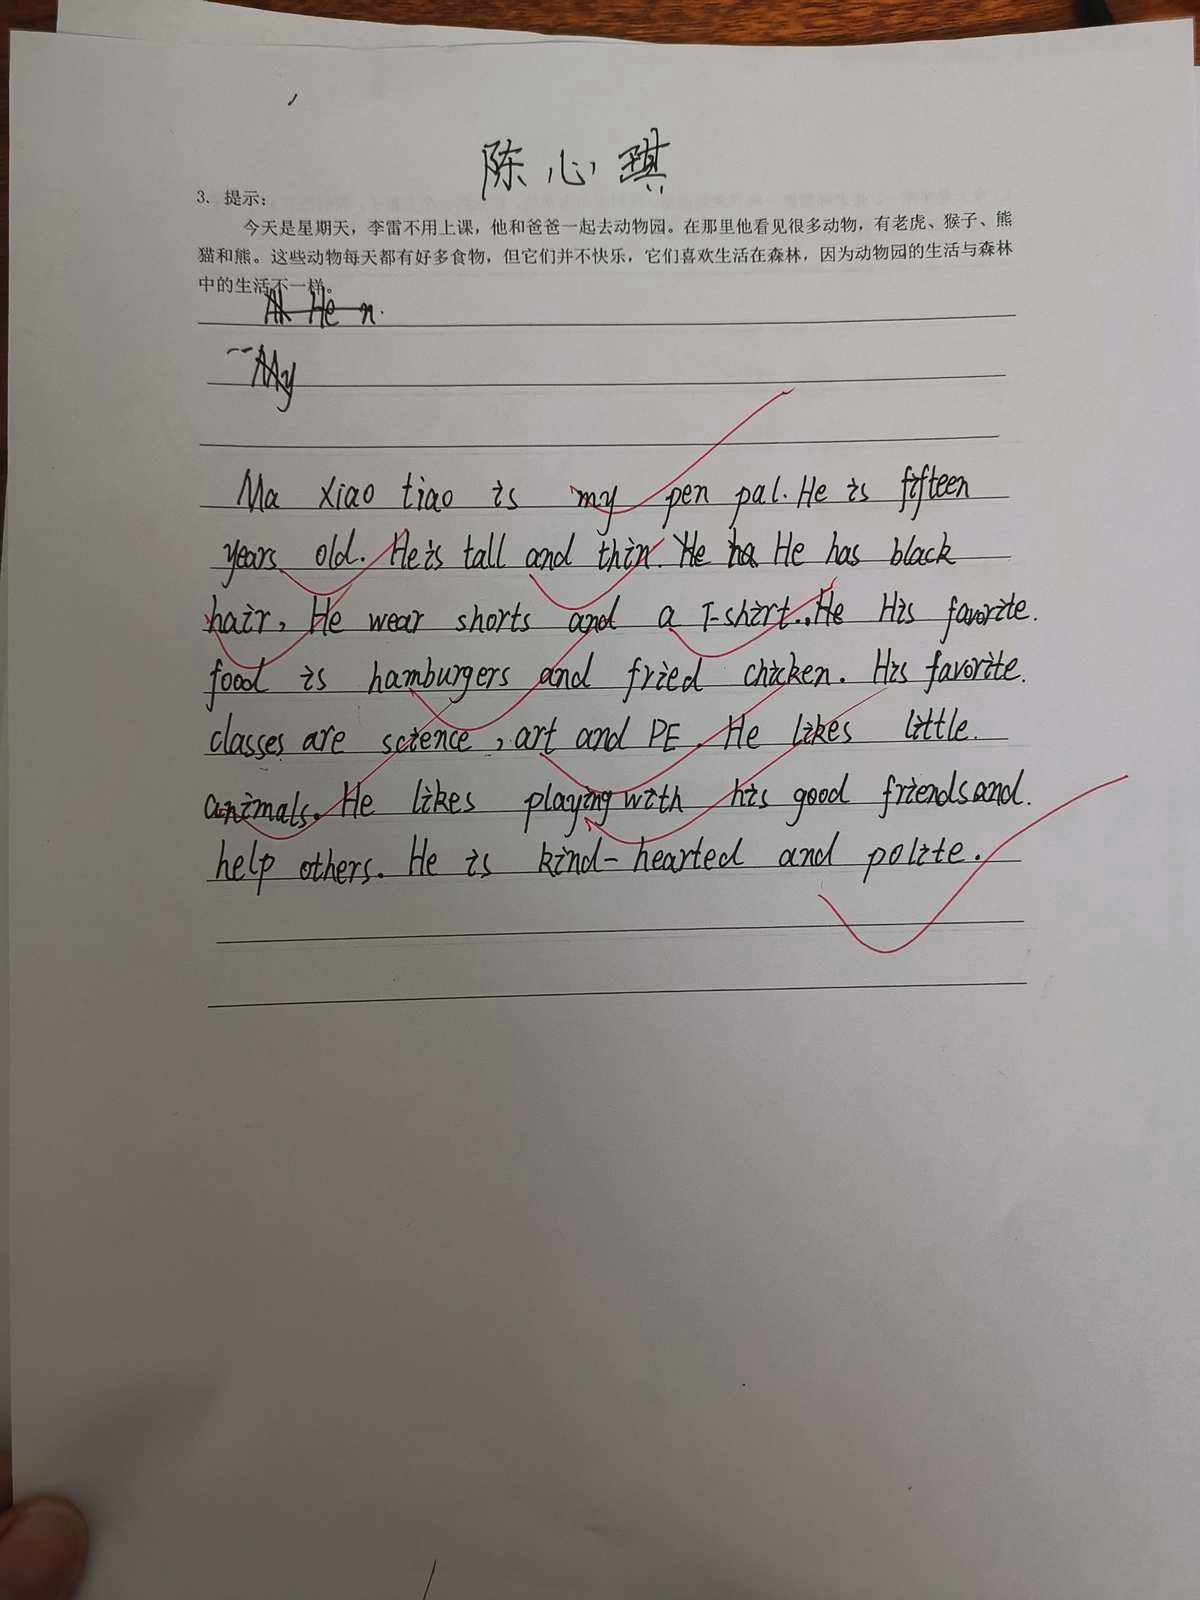 陈心琪
3. 提示:
今天是星期天，李雷不用上课，他和爸爸一起去动物园。在那里他看见很多动物，有老虎、猴子、熊
猫和熊。这些动物每天都有好多食物，但它们并不快乐，它们喜欢生活在森林，因为动物园的生活与森林
中的生活不一样。
He n.
My
Ma xiao tiao is my pen pal. He is fifteen
years old. He is tall and thin. He ha He has black
hair, He wear shorts and a T-shirt. He His favorite.
food is hamburgers and fried chicken. His favorite.
classes are science, art and PE. He likes little.
animals. He likes playing with his good friends and.
help others. He is kind-hearted and polite.